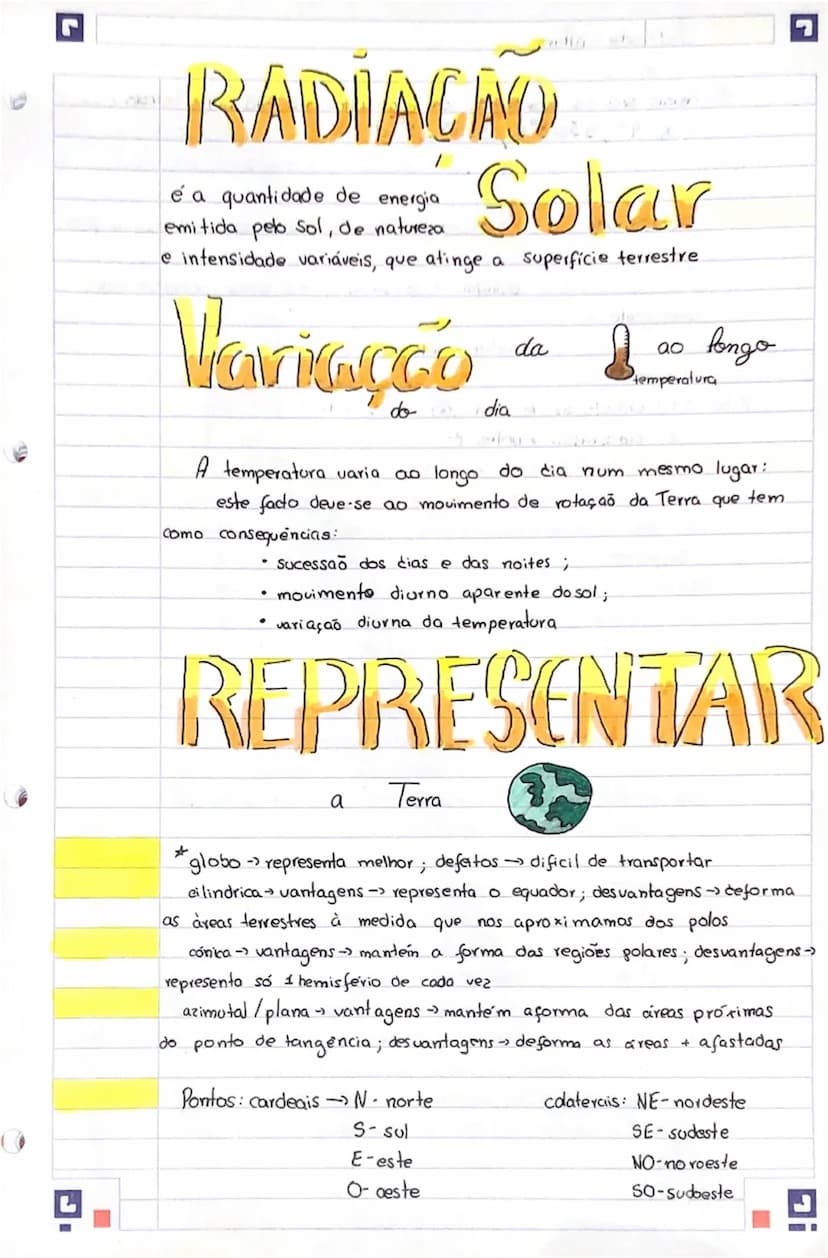 RADIAÇÃO
Solar
é a quantidade de energia
emitida pelo Sol, de natureza
e intensidade variáveis, que atinge a superfície terrestre
Variação da ao longo
temperatura
do dia
A temperatura varia ao longo do dia num mesmo lugar:
este facto deve-se ao movimento de rotaçaõ da Terra que tem
como consequências:
• sucessaõ dos dias e das noites ;
• movimento diurno aparente do sol ;
• variaçaõ diurna da temperatura
REPRESENTAR
a Terra
*globo -> representa melhor ; defeitos -> dificil de transportar
cilindrica -> vantagens -> representa o equador ; desvantagens -> deforma
as àreas terrestres à medida que nos aproximamos dos polos
cónica -> vantagens -> mantém a forma das regiões polares ; desvantagens ->
representa só 1 hemisfério de cada vez
azimutal / plana -> vantagens -> mantém a forma das áreas próximas
do ponto de tangência ; desvantagens -> deforma as áreas + afastadas
Pontos: cardeais -> N - norte colaterais: NE - nordeste
S - sul SE - sudeste
E - este NO - noroeste
O - oeste SO - sudoeste